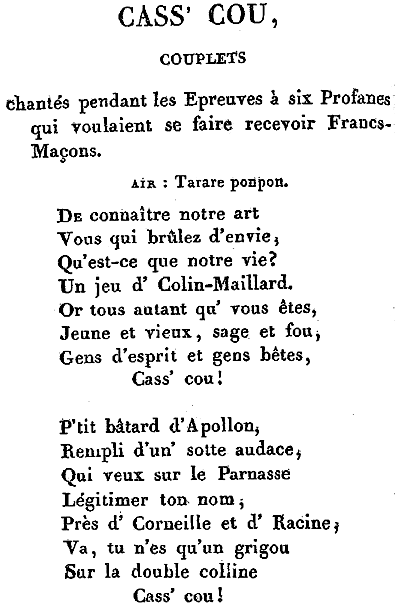 CASS' COU,
COUPLETS
Chantés pendant les Epreuves à six Profanes
qui voulaient se faire recevoir Francs-
Maçons.
AIR : Tarare ponpon.
DE connaître notre art
Vous qui brûlez d'envie,
Qu'est-ce que notre vie?
Un jeu d' Colin-Maillard.
Or tous autant qu' vous êtes,
Jeune et vieux, sage et fou,
Gens d'esprit et gens bêtes,
Cass' cou!
P'tit bâtard d'Apollon,
Rempli d'un' sotte audace,
Qui veux sur le Parnasse
Légitimer ton nom,
Près d' Corneille et d' Racine,
Va, tu n'es qu'un grigou
Sur la double colline
Cass' cou!